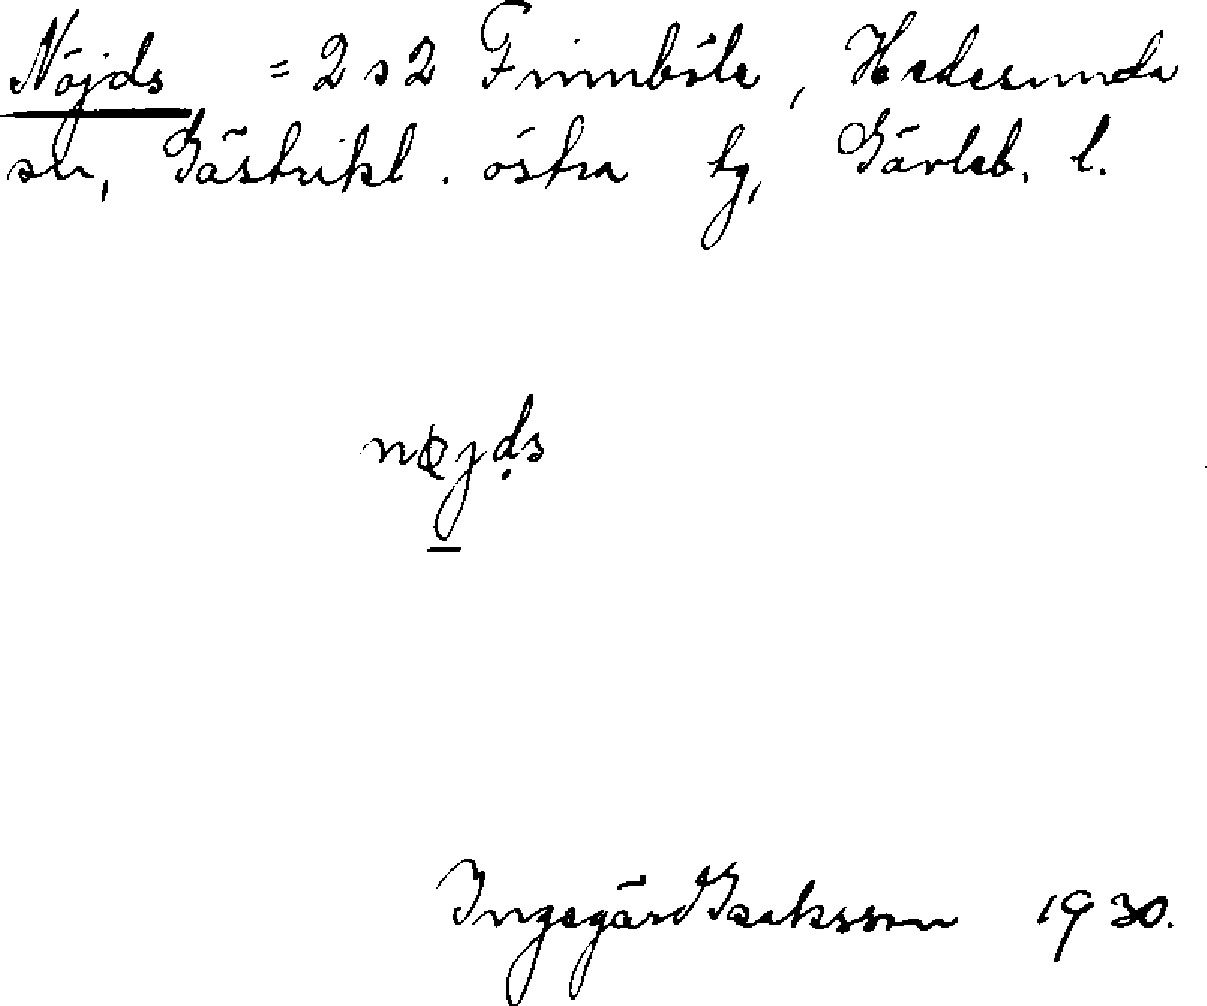 Nöjds = 2 s 2 Finnböle, Hedesunda
sn, Gästrikl. östra tg, Gävleb. l.
nøjḍs
Ingegärd Isaksson 1930.